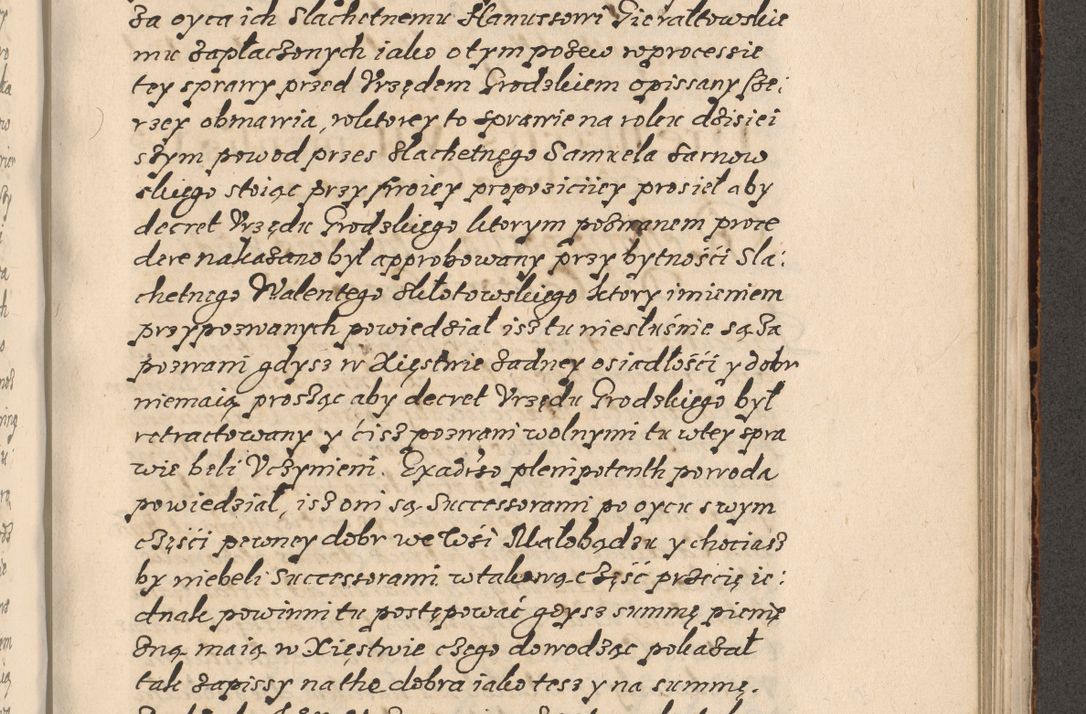 za oyca ich Slachetnemu Hanussowi Gierałtowskie
mu zapłaczonych iako o tym pozew w processie
tey sprawy przed Vrzędem Grodzkiem opissany sze:
rzey obmawia, w ktorey to sprawie na roku dzisiei
szym powod przes Slachetnego Samuela Sarnow
skiego stoiąc przy swoiey propoziciiey prosieł aby
decret Vrzędu Grodzkiego ktorym pozwanem proce
dere nakazano był approbowany przy bytności Sla:
chetnego Walentego Skłotowskiego ktory imieniem
przypozwanych powiedział isz tu niesłusznie są za
pozwani gdysz w Xięstwie żadney osiadłości y dobr
niemaią prosząc aby decret Vrzędu Grodzkiego był
retractowany y ćisz pozwani wolnymi tu wtey spra
wie beli Vczynieni. Exadwerso plenipotenth powoda
powiedział, isz oni są Successorami po oycu swym
części pewney dobr we Wsi Małobądzu y chociasz
by niebeli Successorami w taką część przecię ie:
dnak powinni tu postępować gdysz summę pienię
zną maią w Xięstwie czego dowodząc pokazał
tak zapissy na the dobra iako tesz y na summę.